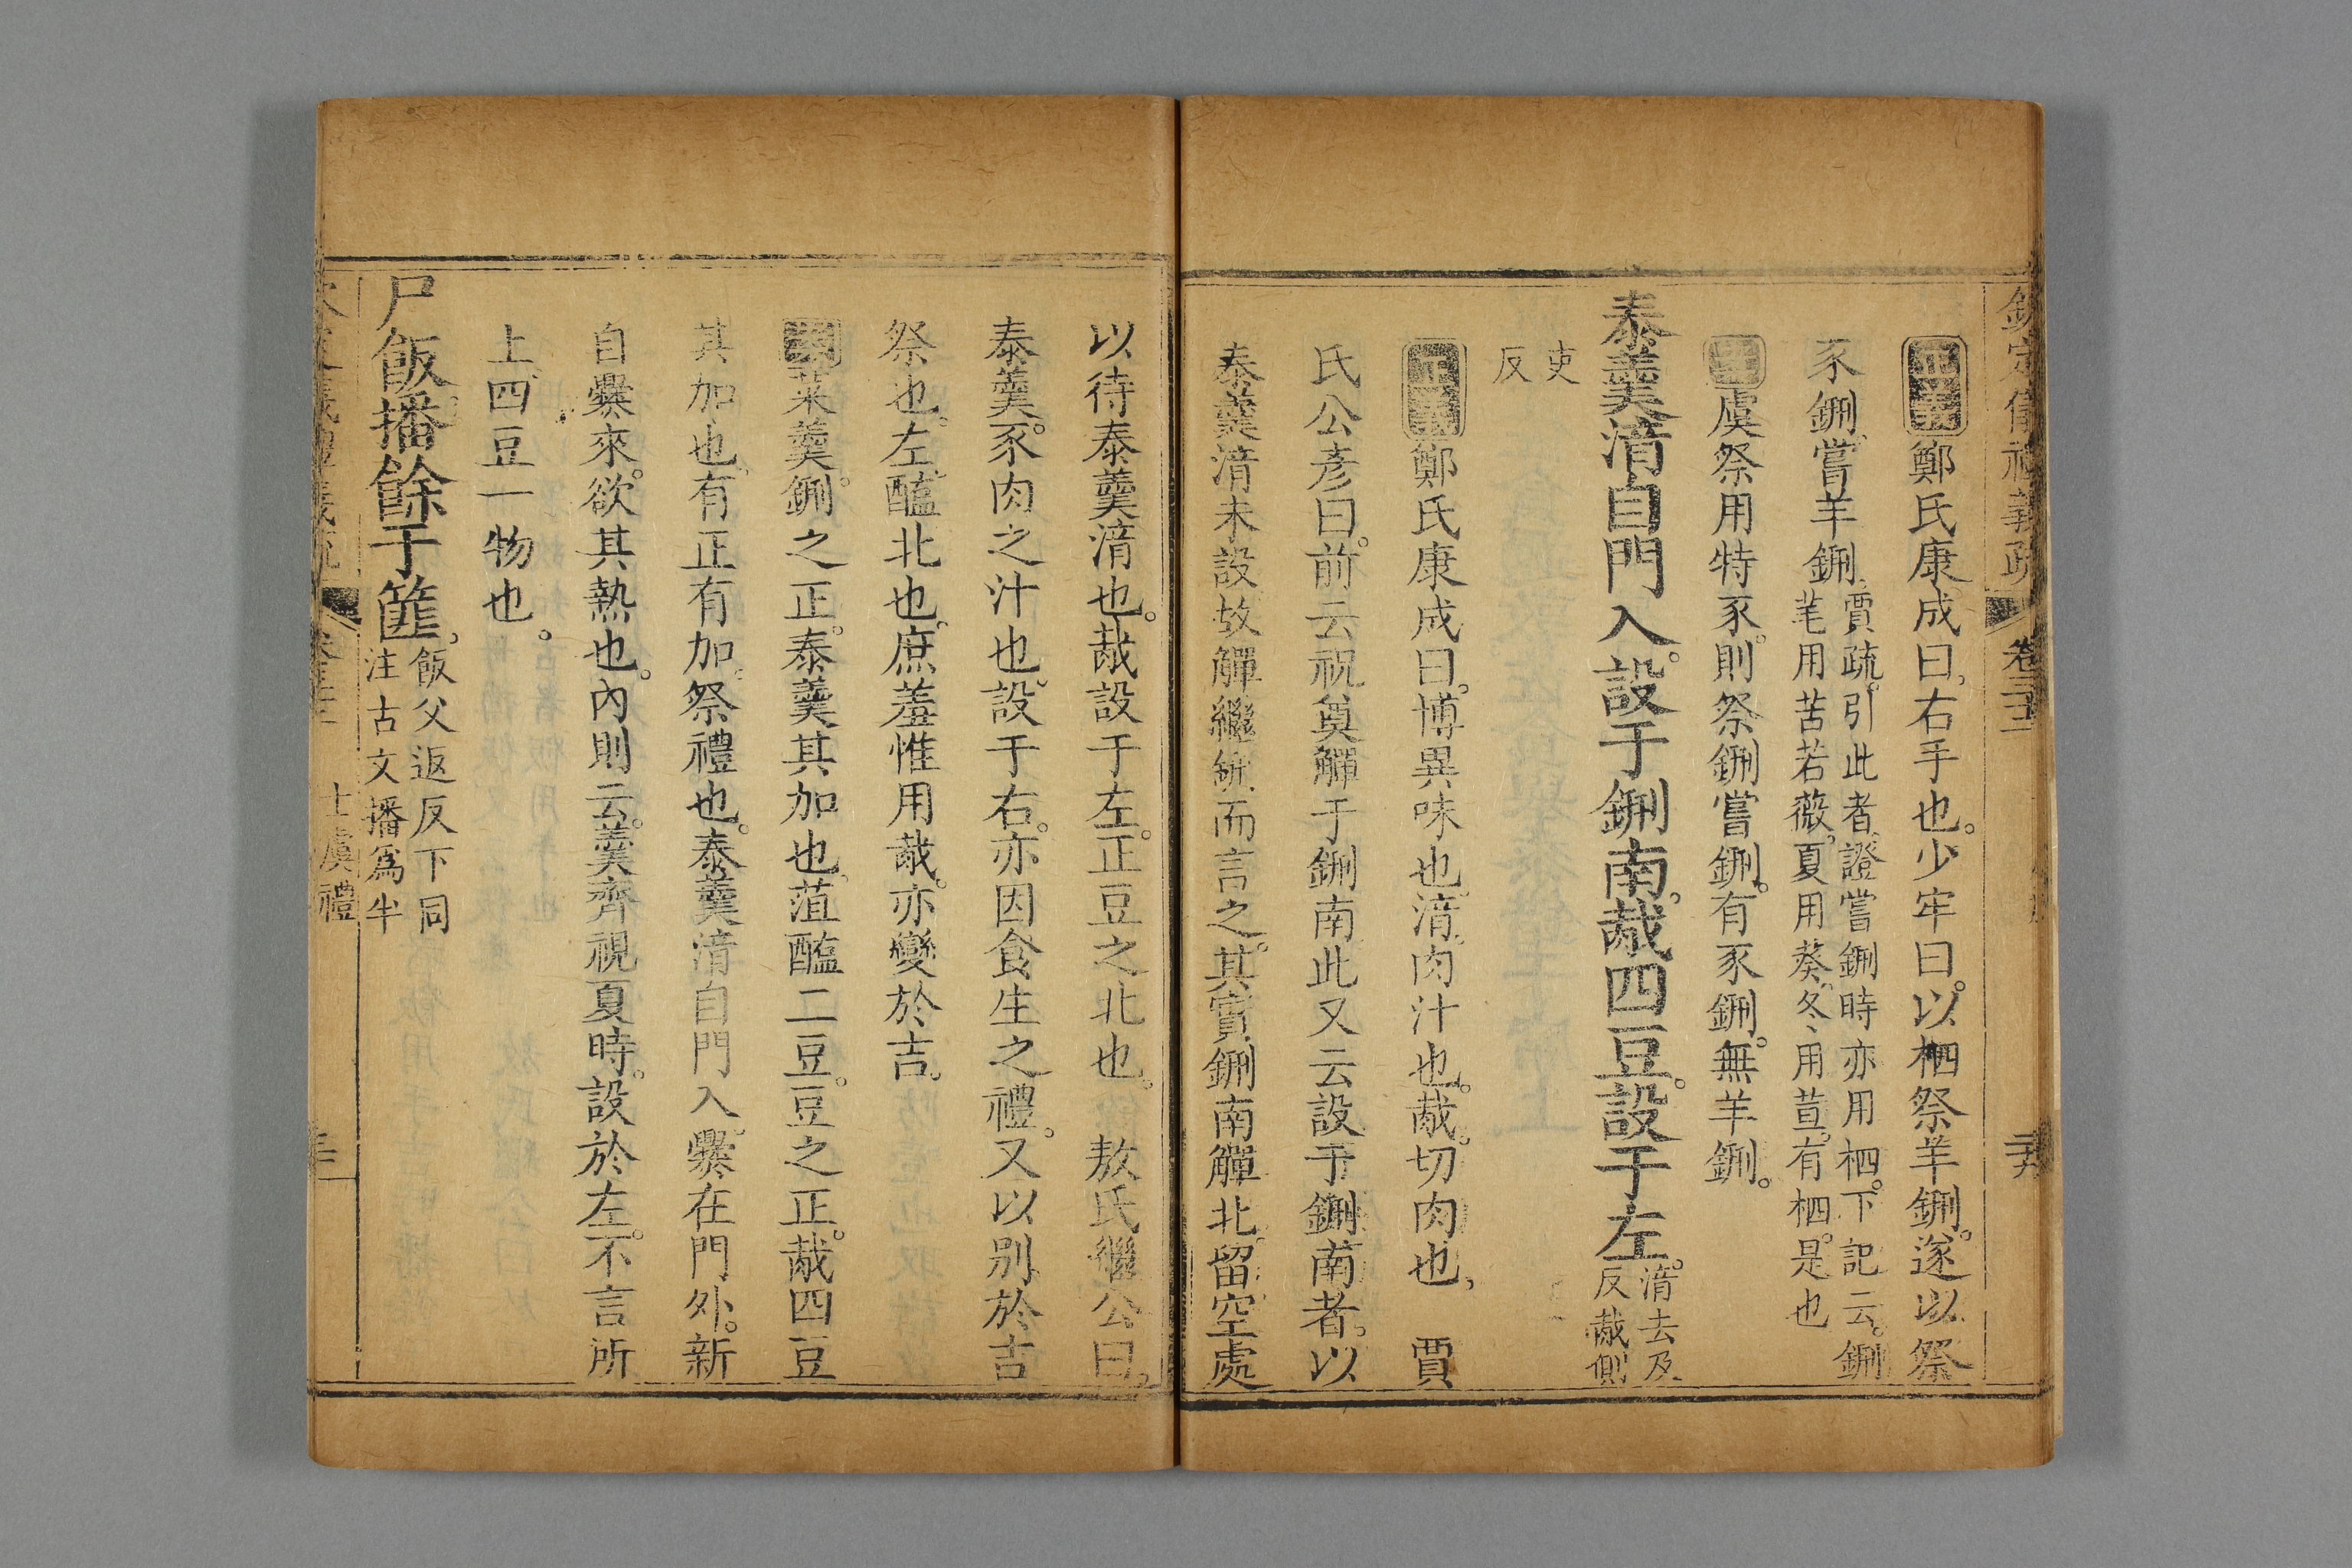 欽定儀禮義疏 卷三十三 三十
正義鄭氏康成曰右手也。少牢曰。以柶祭羊鉶。遂以祭
豕鉶嘗羊鉶賈疏。引此者證嘗鉶時亦用柶。下記云鉶
芼用苦若薇。夏用葵冬用荁有柶是也
虞祭用特豕則祭鉶嘗鉶。有豕鉶。無羊鉶。
泰羹湆自門入。設于鉶南。胾四豆。設于左。湆去及
反胾側
吏
反
正義鄭氏康成曰。博異味也。湆。肉汁也。胾。切肉也 賈
氏公彥曰。前云祝奠觶于鉶南此又云設于鉶南者。以
泰羹湆未設故觶繼鉶而言之。其實鉶南觶北。留空處
以待泰羹湆也。胾設于左。正豆之北也。 敖氏繼公曰
泰羹。豕肉之汁也。設于右。亦因食生之禮。又以別於吉
祭也。左。醢北也。庶羞惟用胾。亦變於吉。
菜羹。鉶之正。泰羹其加也。菹醢二豆。豆之正。胾四豆
其加也。有正有加。祭禮也。泰羹湆自門入。爨在門外。新
自爨來。欲其熱也。內則云。羹齊視夏時。設於左。不言所
上。四豆一物也。
尸飯播餘于篚。飯父返反下同
注古文播爲半
士虞禮